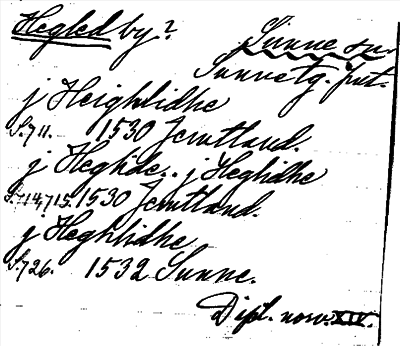 Hegled by? Sunne sn.
Sunne tg. Jmt.
j Heighlidhe
S. 711. 1530 Jemtland.
j Heglide.. j Heglidhe
S. 714, 715. 1530 Jemtland.
j Heghlidhe
S. 726. 1532 Sunne.
Dipl. norv. XIV.